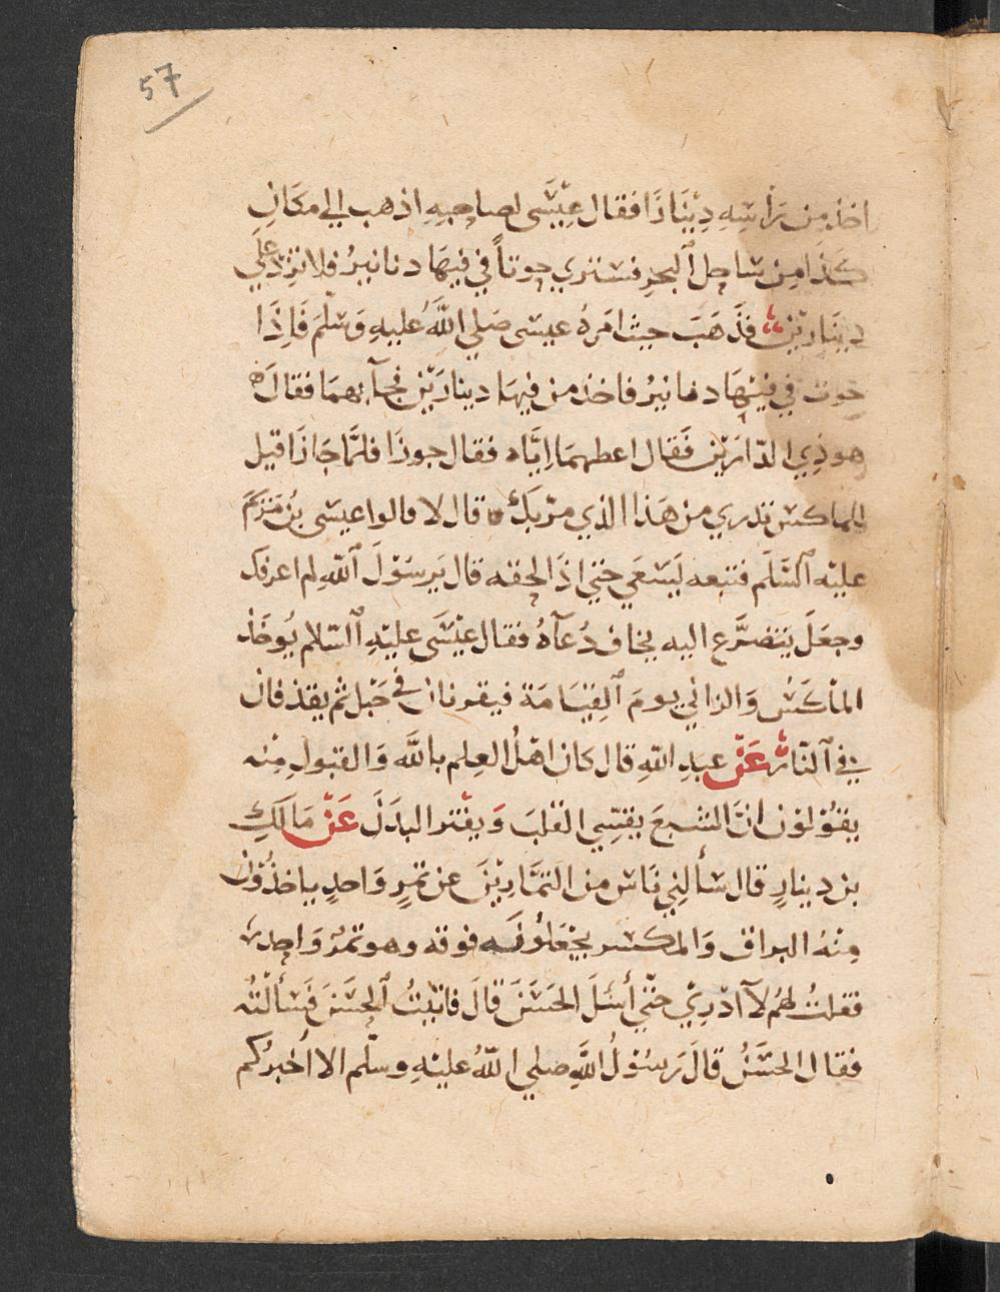 57
اخذ من رَأسِهِ دِيْنَارًا فقال عِيْسَى لصاحِبِهِ اذهب الي مكَانِ
كَذَا من سَاحِل ٱلبحرِ فستري حوتاً في فيهَا دنانيرُ فلا تزد علي
دِينَارَيْنِ فذَهَبَ حيث امَرهُ عيسى صَلي اللَّهُ عليهِ وَسَلَّمَ فَإِذَا
حوت في فيْهَا دنانيرُ فاخذ من فيهَا دينارَيْن فجآ بهمَا فقالَ
هوذِي الدّارَيْن فَقال اعطهمَا إِيَّاه فقال جوزَا فلمَّا جَازَا قيل
للماكس تدري من هَذا الذِي مرّ بكَ قال لا قالوا عيسى بنُ مَرْيَمَ
عليْه ٱلسَّلَم فتبعه يَسْعَي حَتي اذَا لحقه قال يَرسَوْلَ ٱللّهِ لم اعرفك
وجعَلَ يَتضرَّع اليه يخاف دُعَآهُ فقال عيْسَى عليْهِ ٱلسّلام يُوخَذ
المَاكَسُ وَالزاني يومَ ٱلقِيَامَة فيقرنان في حَبْل ثم يقذفان
في ٱلنّار عَنْ عبدِ اللّهِ قال كان اهْلُ العِلم باللَّه وَالقبولِ مِنْه
يقوْلوْن انَّ الشبعَ يقسِّي القلبَ وَيفتر البدَنَ عَنْ مَالكِ
بن دينارٍ قال سَألنِي نَاس من التمَّارِيْنَ عن تمرٍ وَاحدٍ ياخذُوْن
مِنْهُ البراق وَالمكسر يجْعَلُوْنَه فوقه وهو تمرٌ وَاحِد
فقلتُ لهُم لَا ادْرِيْ حَتي أسْئلَ الحَسَنَ قالَ فاتيْتُ ٱلحسَنَ فَسَألْتُه
فقال الحسَنُ قالَ رَسُوْلُ اللَّهِ صلي اللّهُ عليْهِ وسلَّم الا اُخبرُكم